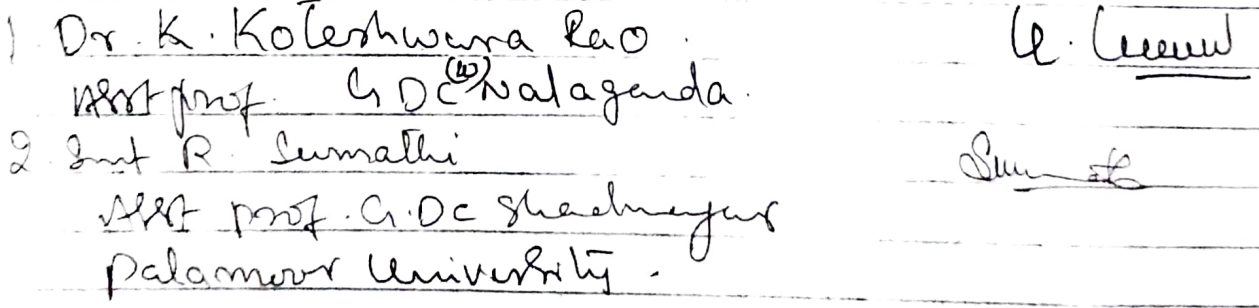 1. Dr. K. Koteshwara Rao.
Asst prof. GDC (W) Nalagonda.
2. Smt R. Sumathi
Asst prof. G.DC Shadnagar
Palamoor University.